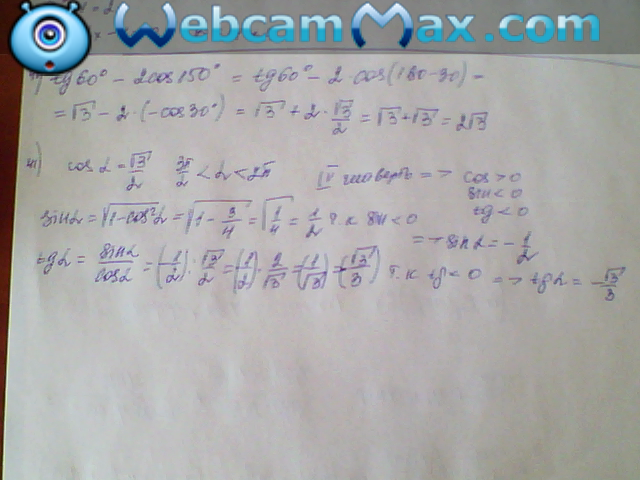 WebcamMax.com
tg60° - 2cos150° = tg60° - 2·cos(180-30) =
= √3 - 2·(-cos30°) = √3 + 2·√3/2 = √3+√3 = 2√3
cos α = √3/2   3π/2 < α < 2π   IV четверть => cos > 0
sin < 0
tg < 0
sin α = √1-cos²α = √1 - 3/4 = √1/4 = 1/2 т.к sin < 0
=> sin α = -1/2
tg α = sin α/cos α = (-1/2) : √3/2 = (1/2) · 2/√3 = (1/√3) = (-√3/3) т.к tg < 0 => tg α = -√3/3